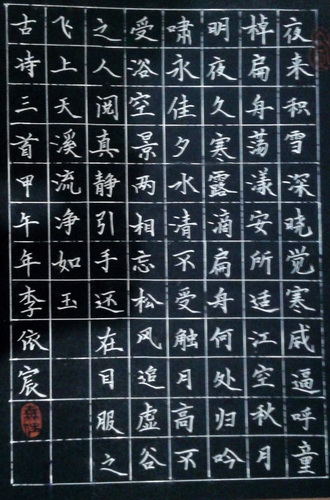 夜来积雪深晓觉寒威逼呼童
棹扁舟荡漾安所适江空秋月
明夜久寒露滴扁舟何处归吟
啸永佳夕水清不受触月高不
受浴空景两相忘松风追虚谷
之人阅真静引手还在目服之
飞上天溪流净如玉
古诗三首甲午年李依宸